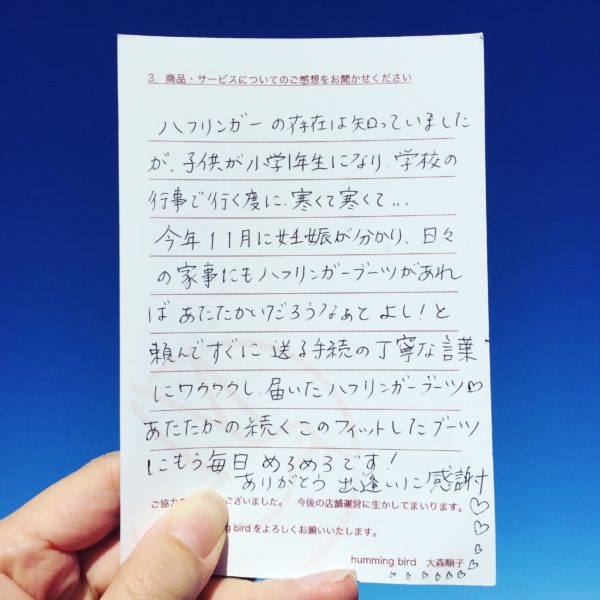 3. 商品・サービスについてのご感想をお聞かせください
ハフリンガーの存在は知っていました
が、子供が小学1年生になり、学校の
行事で行く度に、寒くて寒くて...
今年11月に妊娠が分かり、日々
の家事にもハフリンガーブーツがあれ
ばあたたかいだろうなぁとよし!と
頼んですぐに送る手続の丁寧な言葉
にワクワクし、届いたハフリンガーブーツ♡
あたたかの続くこのフィットしたブーツ
にもう毎日めろめろです!
ありがとう出逢いに感謝♡
ございました。 今後の店舗運営に生かしてまいります。
bird をよろしくお願いいたします。
humming bird 大森順子